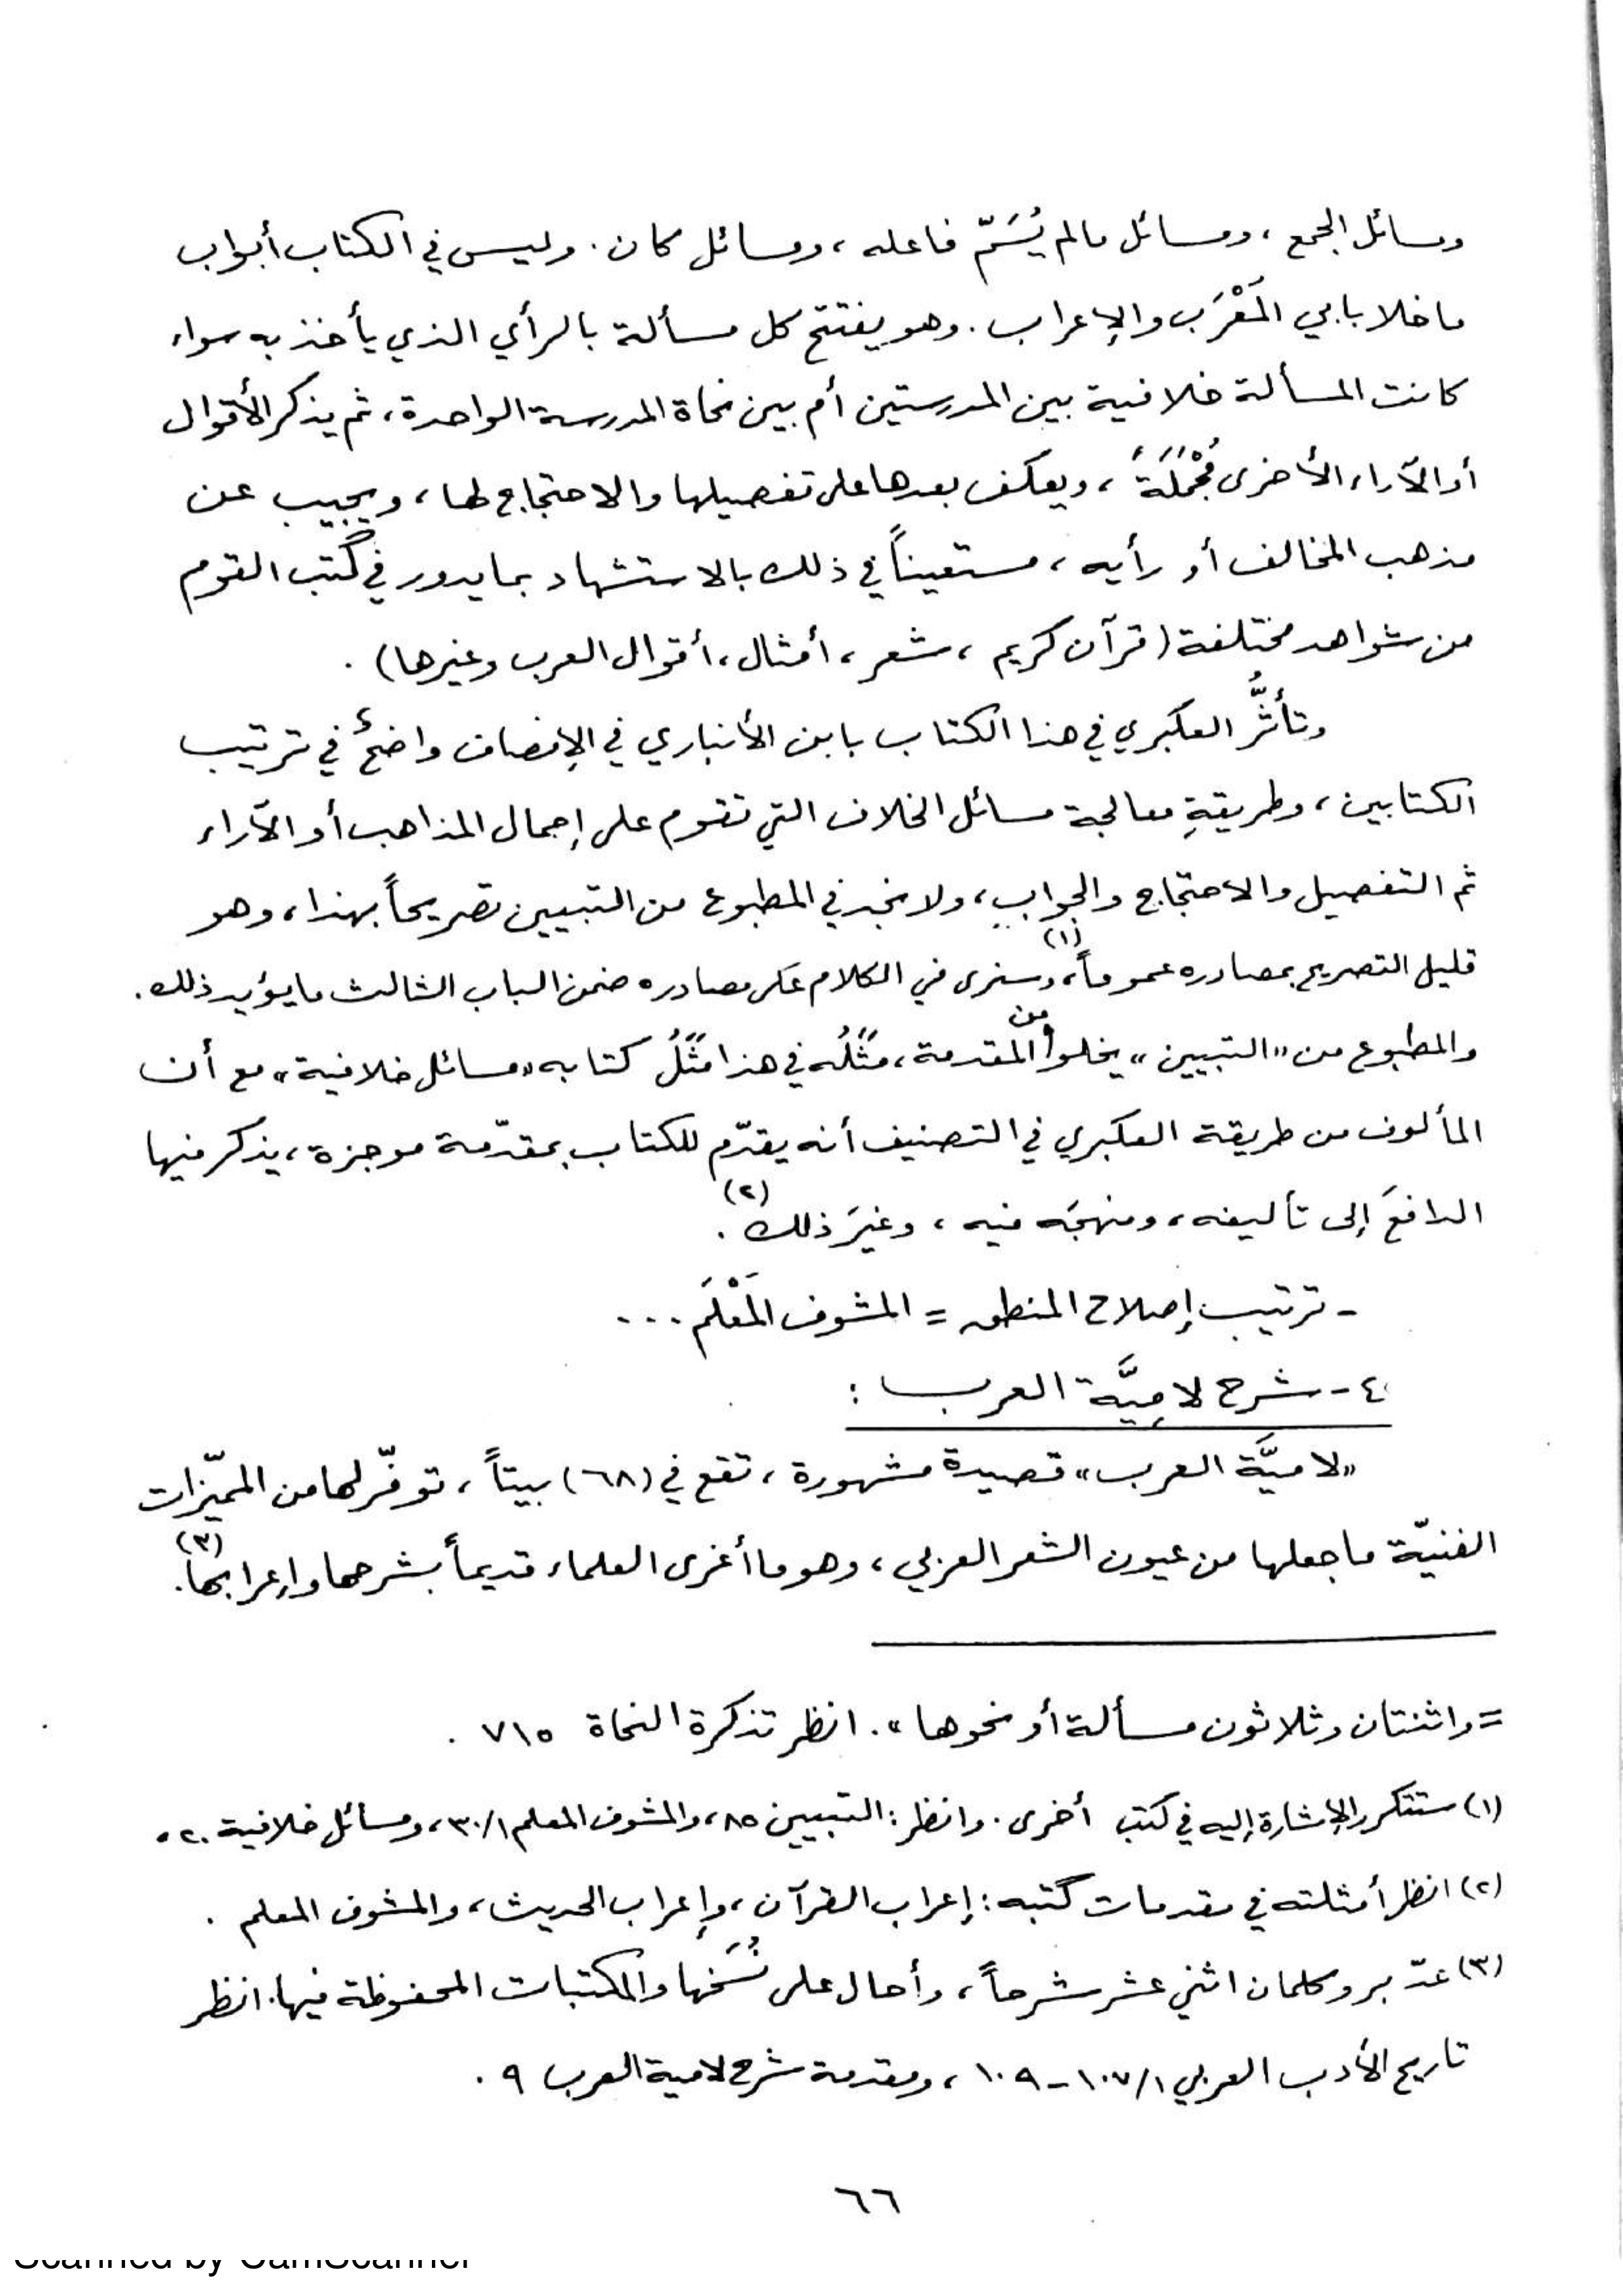 ومسائل الجمع ، ومسائل مالم يُسَمّ فاعله ، ومسائل كان . وليس في الكتاب أبواب
ما خلا بابي المَعْرَب والإعراب . وهو يفتتح كل مسألة بالرأي الذي يأخذ به سواء
كانت المسألة خلافية بين المدرستين أم بين نحاة المدرسة الواحدة ، ثم يذكر الأقوال
أو الآراء الأخرى مُجْمَلَةً ، ويعكف بعدها على تفصيلها والاحتجاج لها ، ويجيب عن
مذهب المخالف أو رأيه ، مستعيناً في ذلك بالاستشهاد بما يدور في كُتب القوم
من شواهد مختلفة ( قرآن كريم ، شعر ، أمثال ، أقوال العرب وغيرها ) .
وتأثُّر العكبري في هذا الكتاب بابن الأنباري في الإنصاف واضحٌ في ترتيب
الكتابين ، وطريقةِ معالجة مسائل الخلاف التي تقوم على إجمال المذاهب أو الآراء
ثم التفصيل والاحتجاج والجوابِ ، ولا نجد في المطبوع من التبيين تصريحاً بهذا ، وهو
قليل التصريح بمصادره عموماً(١)، وسنرى في الكلام على مصادره ضمن الباب الثالث ما يؤيد ذلك .
والمطبوع من «التبيين» يخلو من المقدمة ، مَثَلُه في هذا مَثَلُ كتابه «مسائل خلافية» مع أن
المألوف من طريقة العكبري في التصنيف أنه يقدّم للكتاب بمقدّمة موجزة ، يذكر فيها
الدافعَ إلى تأليفه ، ومنهجَه فيه ، وغيرَ ذلك(٢) .
- ترتيب إصلاح المنطق = المشوف المَعْلَم ...
٤ - شرح لامِيَّة العرب :
«لاميَّة العرب» قصيدة مشهورة ، تقع في (٦٨) بيتاً ، توفّر لها من المميّزات
الفنيّة ما جعلها من عيون الشعر العربي ، وهو ما أغرى العلماء قديماً بشرحها وإعرابها(٣).
= واثنتان وثلاثون مسألة أو نحوها » . انظر تذكرة النحاة ٧١٥ .
(١) ستتكرر الإشارة إليه في كتب أخرى . وانظر : التبيين ٨٥ ، والمشوف المعلم ٣٠/١ ، ومسائل خلافية ٢٠ .
(٢) انظر أمثلته في مقدمات كُتبه : إعراب القرآن ، وإعراب الحديث ، والمشوف المعلم .
(٣) عدّ بروكلمان اثني عشر شرحاً ، وأحال على نُسَخها والمكتبات المحفوظة فيها . انظر
تاريخ الأدب العربي ١٠٧/١ - ١٠٩ ، ومقدمة شرح لامية العرب ٩ .
٦٦
Scanned by CamScanner